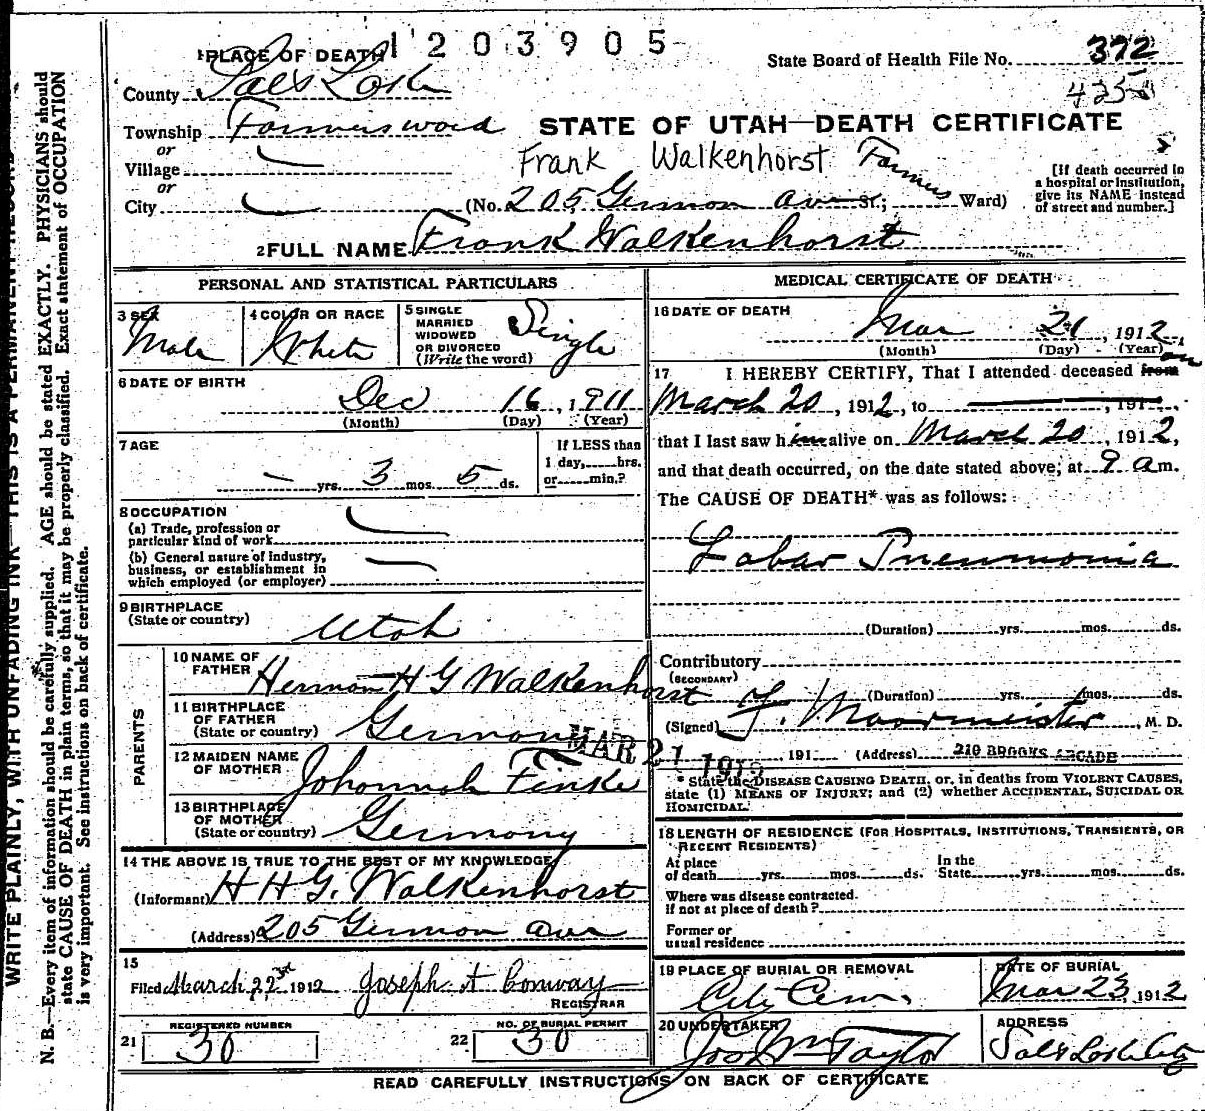 1 PLACE OF DEATH 1203905
State Board of Health File No. 372
County Salt Lake
Township Farmers ward
STATE OF UTAH—DEATH CERTIFICATE
or
Village
Frank Walkenhorst
or
City (No. 205 German ave St.; Farmers Ward)
[If death occurred in
a hospital or institution,
give its NAME instead
of street and number.]
2 FULL NAME Frank Walkenhorst
PERSONAL AND STATISTICAL PARTICULARS
3 SEX
Male
4 COLOR OR RACE
White
5 SINGLE
MARRIED
WIDOWED
OR DIVORCED
(Write the word)
Single
6 DATE OF BIRTH
Dec 16, 1911
(Month) (Day) (Year)
7 AGE
— yrs. 3 mos. 5 ds.
If LESS than
1 day, hrs.
or min.?
8 OCCUPATION
(a) Trade, profession or
particular kind of work
(b) General nature of industry,
business, or establishment in
which employed (or employer)
9 BIRTHPLACE
(State or country)
Utah
PARENTS
10 NAME OF
FATHER Herman H G Walkenhorst
11 BIRTHPLACE
OF FATHER
(State or country) Germany
12 MAIDEN NAME
OF MOTHER Johannah Finke
13 BIRTHPLACE
OF MOTHER
(State or country) Germany
14 THE ABOVE IS TRUE TO THE BEST OF MY KNOWLEDGE
(Informant) H H G. Walkenhorst
(Address) 205 German ave
15
Filed March 22 1912 Joseph A Conway
REGISTRAR
REGISTERED NUMBER
21 30
NO. OF BURIAL PERMIT
22 30
MEDICAL CERTIFICATE OF DEATH
16 DATE OF DEATH
Mar 21, 1912
(Month) (Day) (Year)
17 I HEREBY CERTIFY, That I attended deceased from on
March 20, 1912, to , 191 ,
that I last saw him alive on March 20, 1912,
and that death occurred, on the date stated above, at 9 a m.
The CAUSE OF DEATH* was as follows:
Lobar Pneumonia
(Duration) yrs. mos. ds.
Contributory
(SECONDARY)
(Duration) yrs. mos. ds.
(Signed) F. Moormeister, M. D.
MAR 21 1912
191 (Address) 210 BROOKS ARCADE
* State the DISEASE CAUSING DEATH, or, in deaths from VIOLENT CAUSES,
state (1) MEANS OF INJURY; and (2) whether ACCIDENTAL, SUICIDAL OR
HOMICIDAL.
18 LENGTH OF RESIDENCE (FOR HOSPITALS, INSTITUTIONS, TRANSIENTS, OR
RECENT RESIDENTS)
At place
of death yrs. mos. ds.
In the
State yrs. mos. ds.
Where was disease contracted.
if not at place of death?
Former or
usual residence
19 PLACE OF BURIAL OR REMOVAL
City Cem.
DATE OF BURIAL
Mar 23, 1912
20 UNDERTAKER
Jos Wm Taylor
ADDRESS
Salt Lake City
READ CAREFULLY INSTRUCTIONS ON BACK OF CERTIFICATE
WRITE PLAINLY, WITH UNFADING INK—THIS IS A PERMANENT RECORD
N. B.—Every item of information should be carefully supplied. AGE should be stated EXACTLY. PHYSICIANS should
state CAUSE OF DEATH in plain terms, so that it may be properly classified. Exact statement of OCCUPATION
is very important. See instructions on back of certificate.